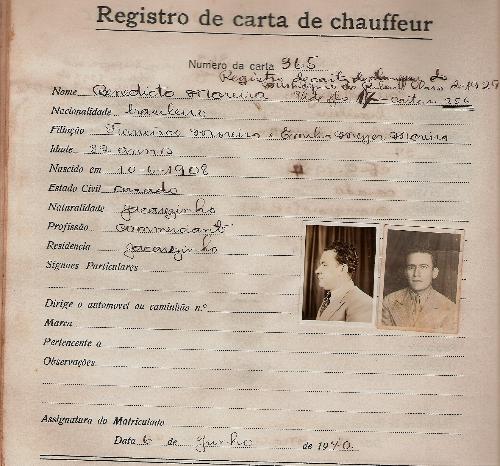 Registro de carta de chauffeur
Numero da carta 965
Registro de carta de chauffeur do
Nome Benedicto Moreira
Nacionalidade brasileiro
Filiação Francisco Moreira e Moreira
Idade annos
Nascido em 10-6-1908
Estado Civil casado
Naturalidade Jacarezinho
Profissão commerciante
Residencia Jacarezinho
Signaes Particulares
Dirige o automovel ou caminhão n.º
Marca
Pertencente a
Observações
Assignatura do Matriculado
Data 6 de Junho de 1940